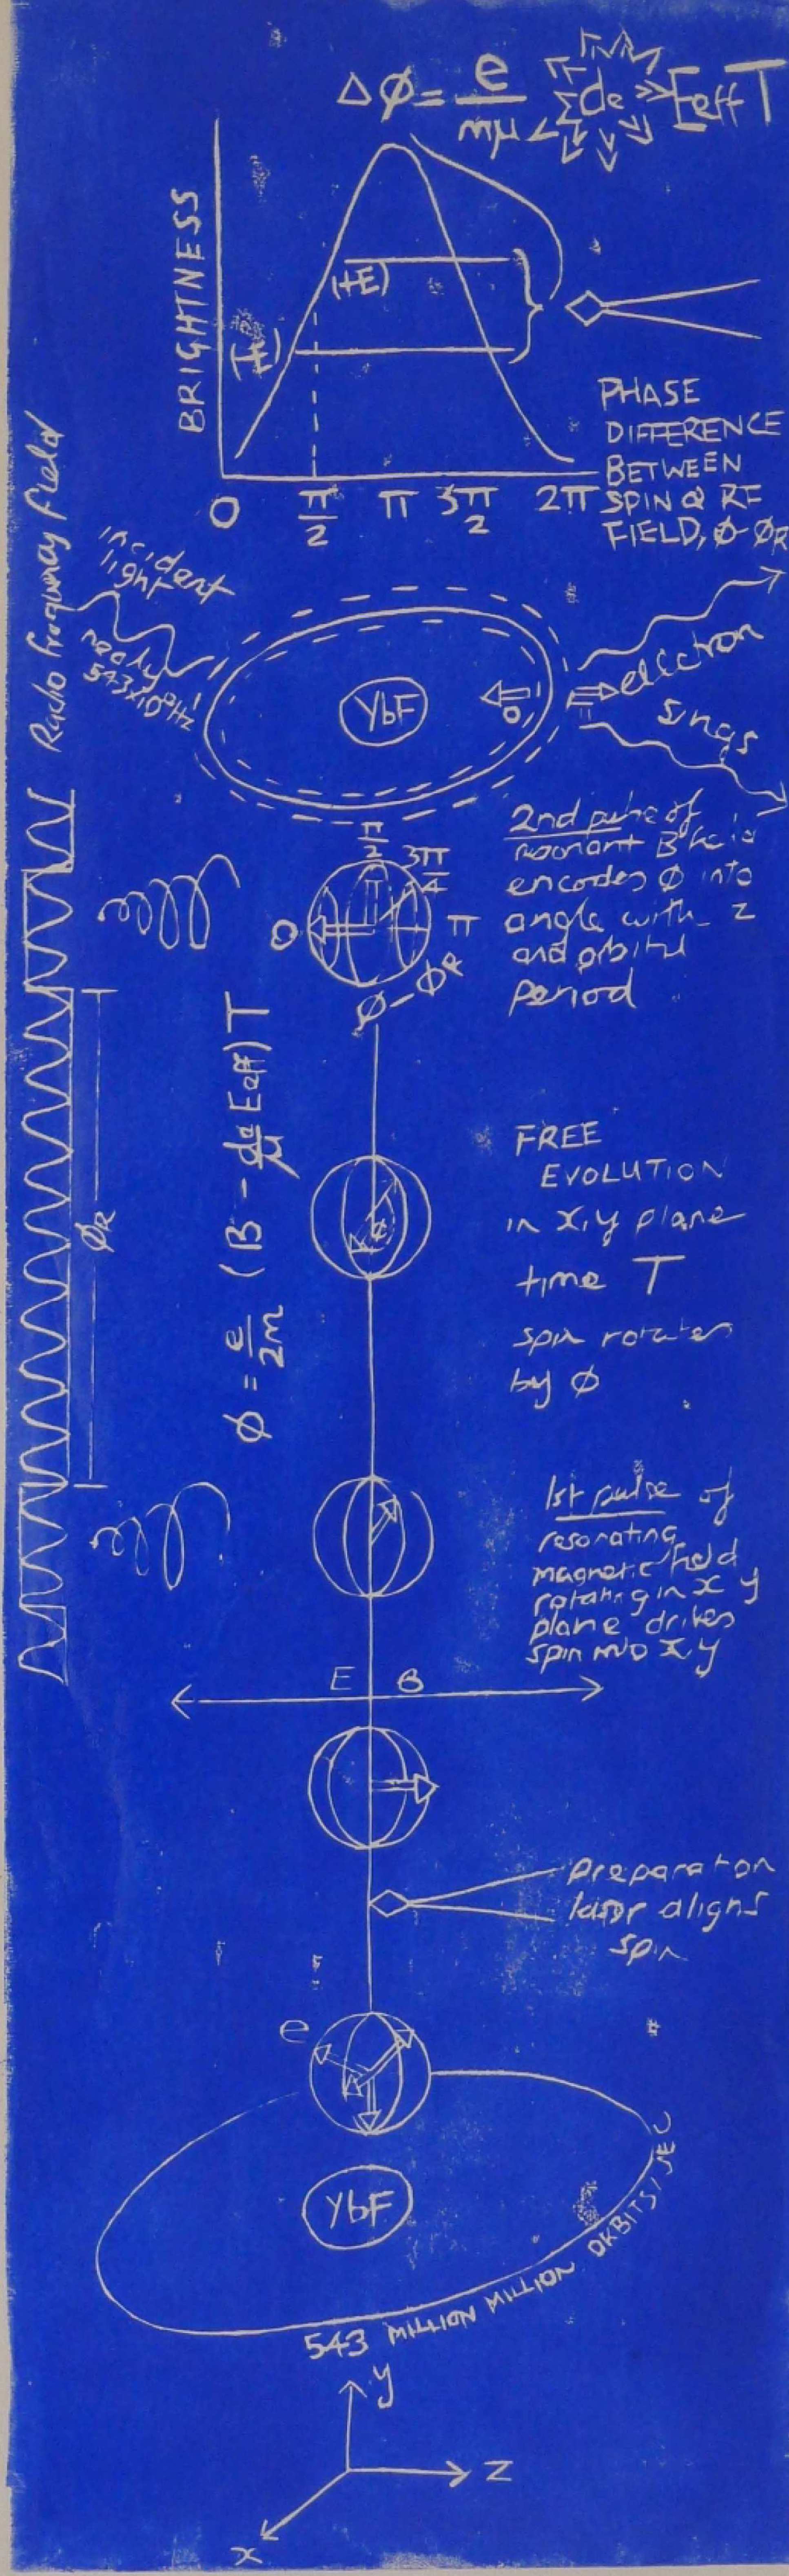 Δφ = e/mμ de Eeff T
BRIGHTNESS
(+E)
0 π/2 π 3π/2 2π
PHASE
DIFFERENCE
BETWEEN
SPIN & RF
FIELD, φ-φR
Radio frequency field
incident
light
YbF
electron
sings
2nd pulse of
resonant B field
encodes φ into
angle with z
and orbital
period
π/2
3π/4
0
π
φ-φR
φR
φ = e/2m (B - de/μ Eeff) T
FREE
EVOLUTION
in x,y plane
time T
spin rotates
by φ
1st pulse of
resonating
magnetic field
rotating in x y
plane drives
spin into x y
E B
Preparation
laser aligns
spin
e
YbF
543 MILLION MILLION ORBITS/SEC
y
z
x